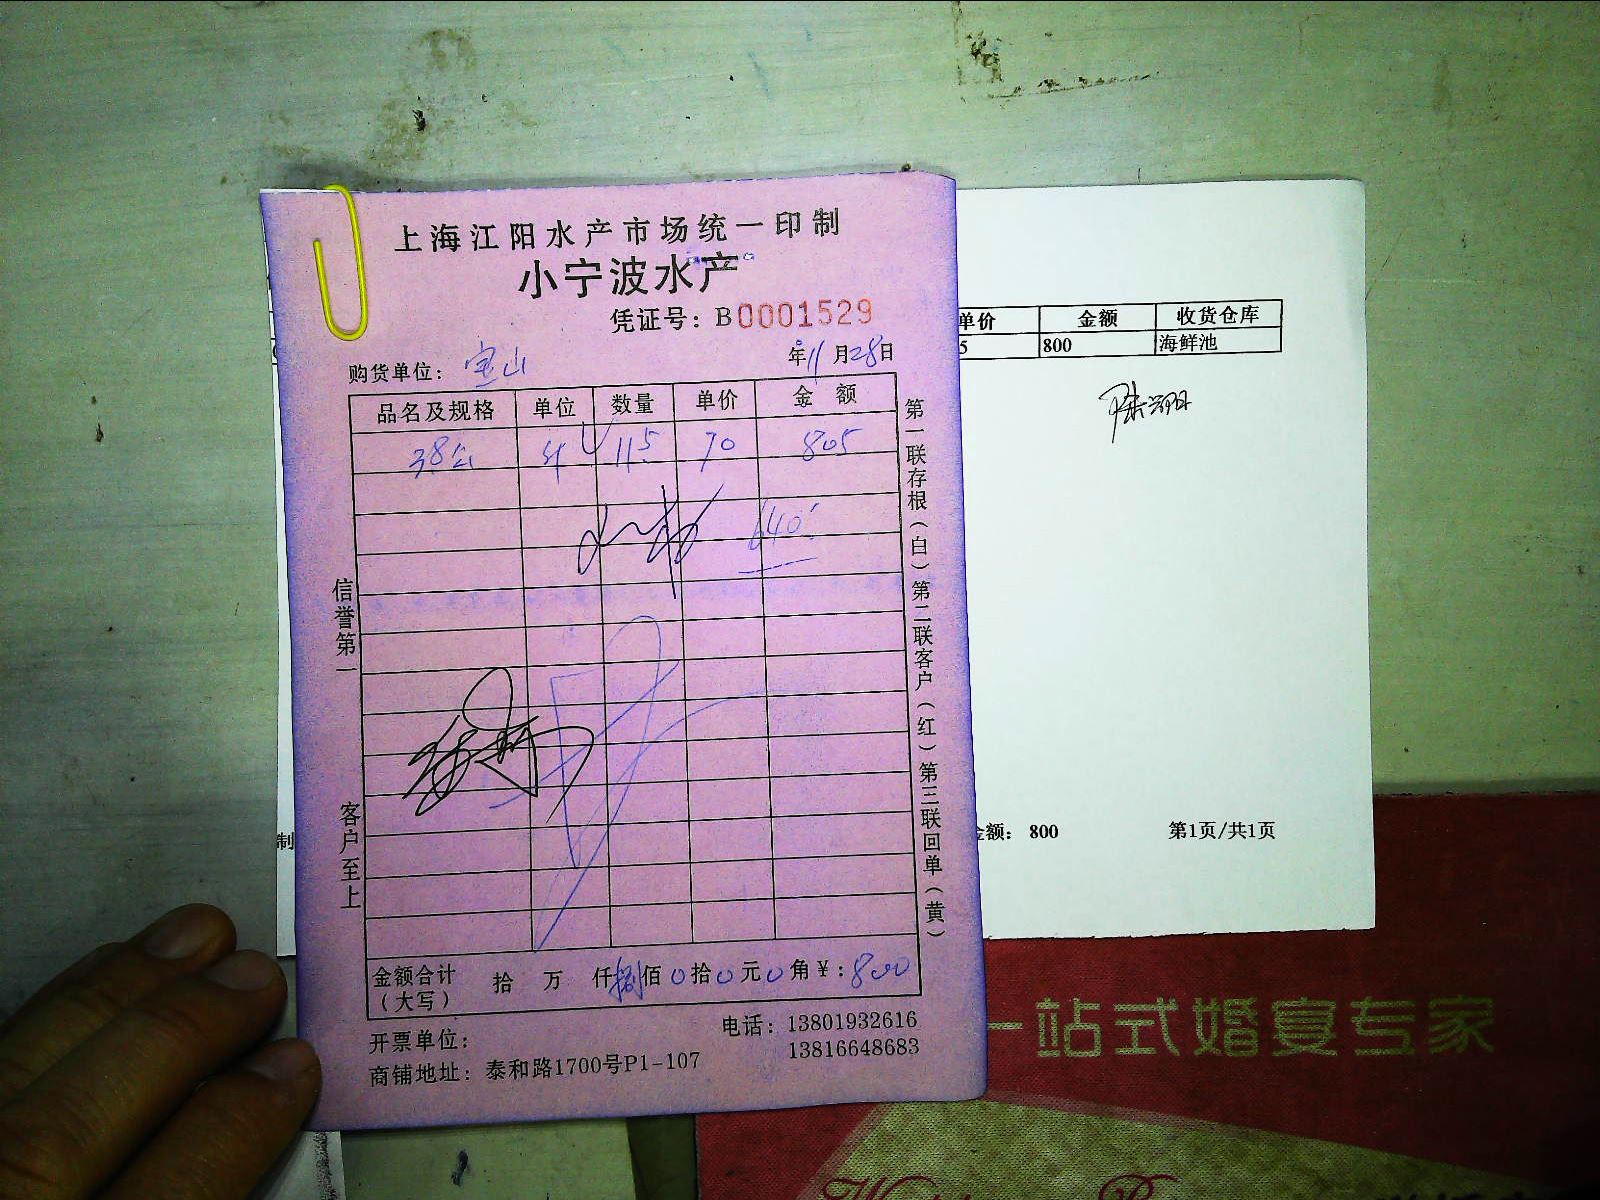 上海江阳水产市场统一印制
小宁波水产
凭证号：B0001529
购货单位：宝山
年11月28日
品名及规格 单位 数量 单价 金额
38公 斤 115 70 805
640
金额合计（大写） 拾 万 仟捌佰0拾0元0角￥：800
开票单位：
电话：13801932616
13816648683
商铺地址：泰和路1700号P1-107
信誉第一
客户至上
第一联存根（白）第二联客户（红）第三联回单（黄）
单价 金额 收货仓库
5 800 海鲜池
制
金额： 800
第1页/共1页
一站式婚宴专家